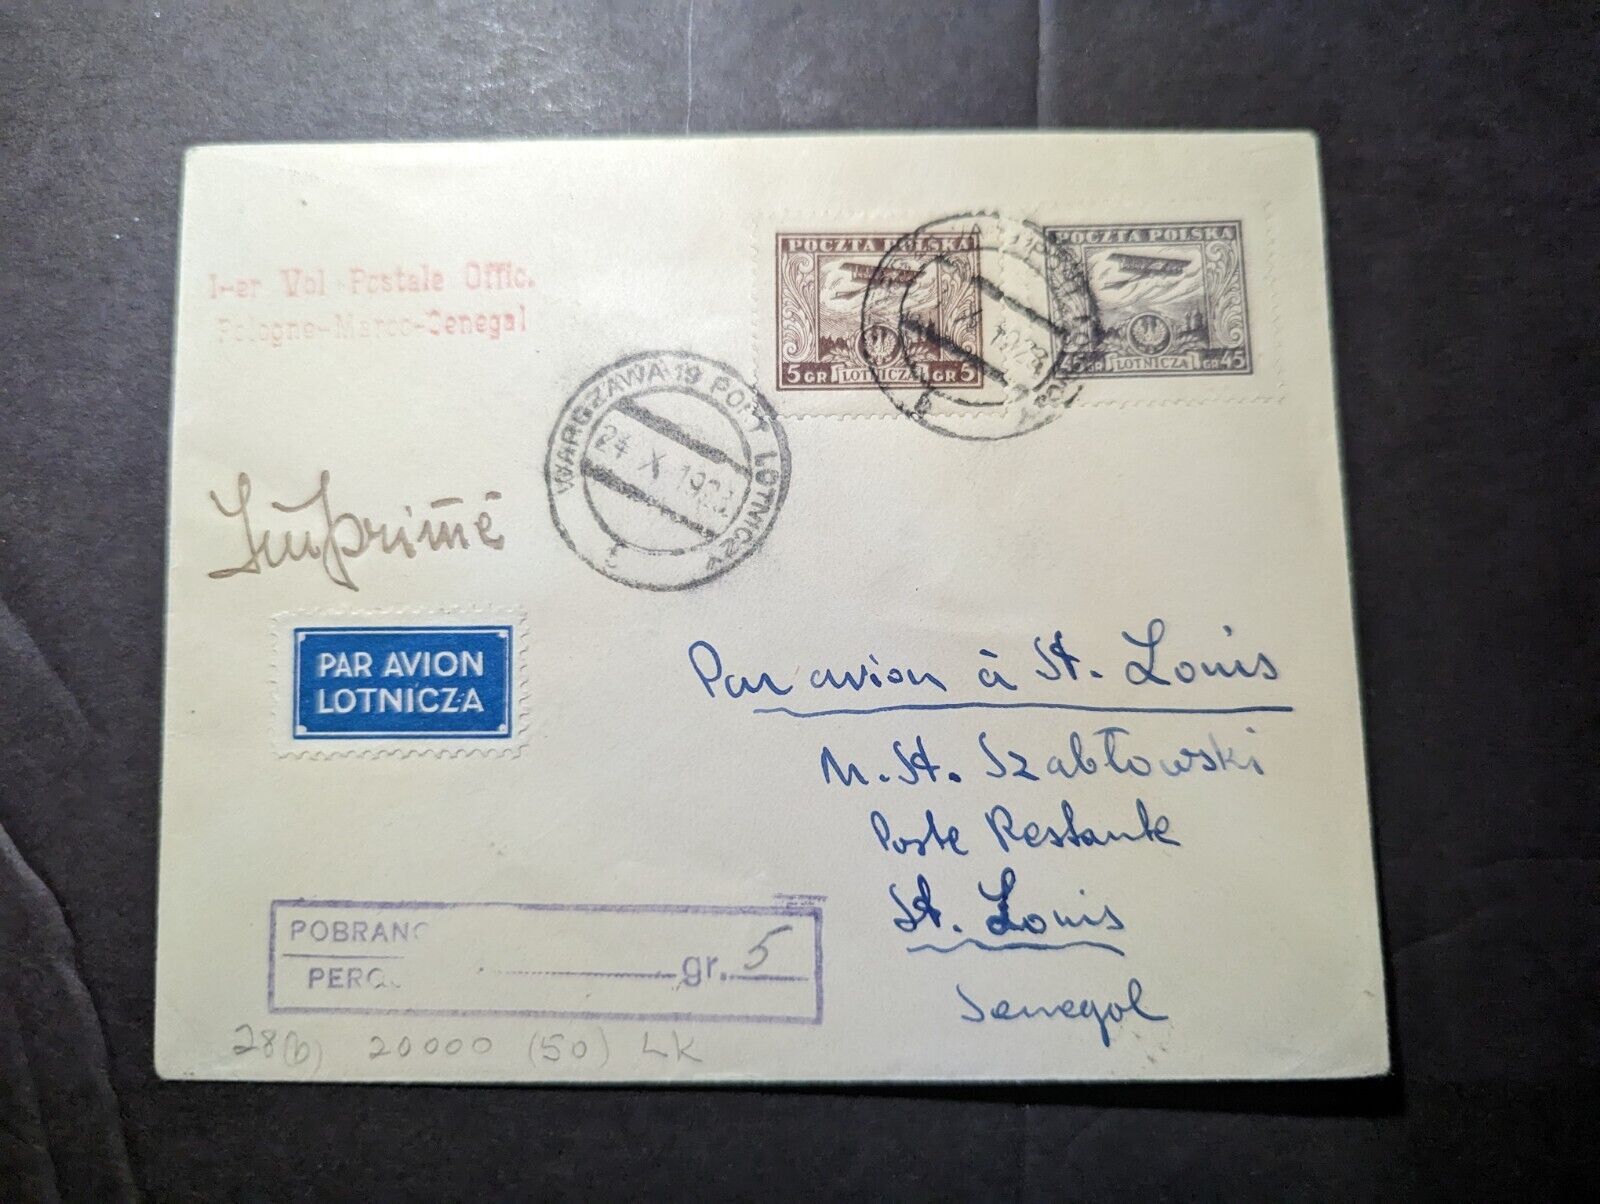 I-er Vol Postale Offic.
Pologne-Maroc-Senegal
POCZTA POLSKA
5 GR LOTNICZA GR 5
POCZTA POLSKA
45 GR LOTNICZA GR 45
WARSZAWA 19 PORT LOTNICZY
24 X 1928
Imprimé
PAR AVION
LOTNICZA
Par avion à St. Louis
M. St. Szabłowski
Poste Restante
St. Louis
Senegal
POBRANO
gr. 5
28(b) 20000 (50) LK